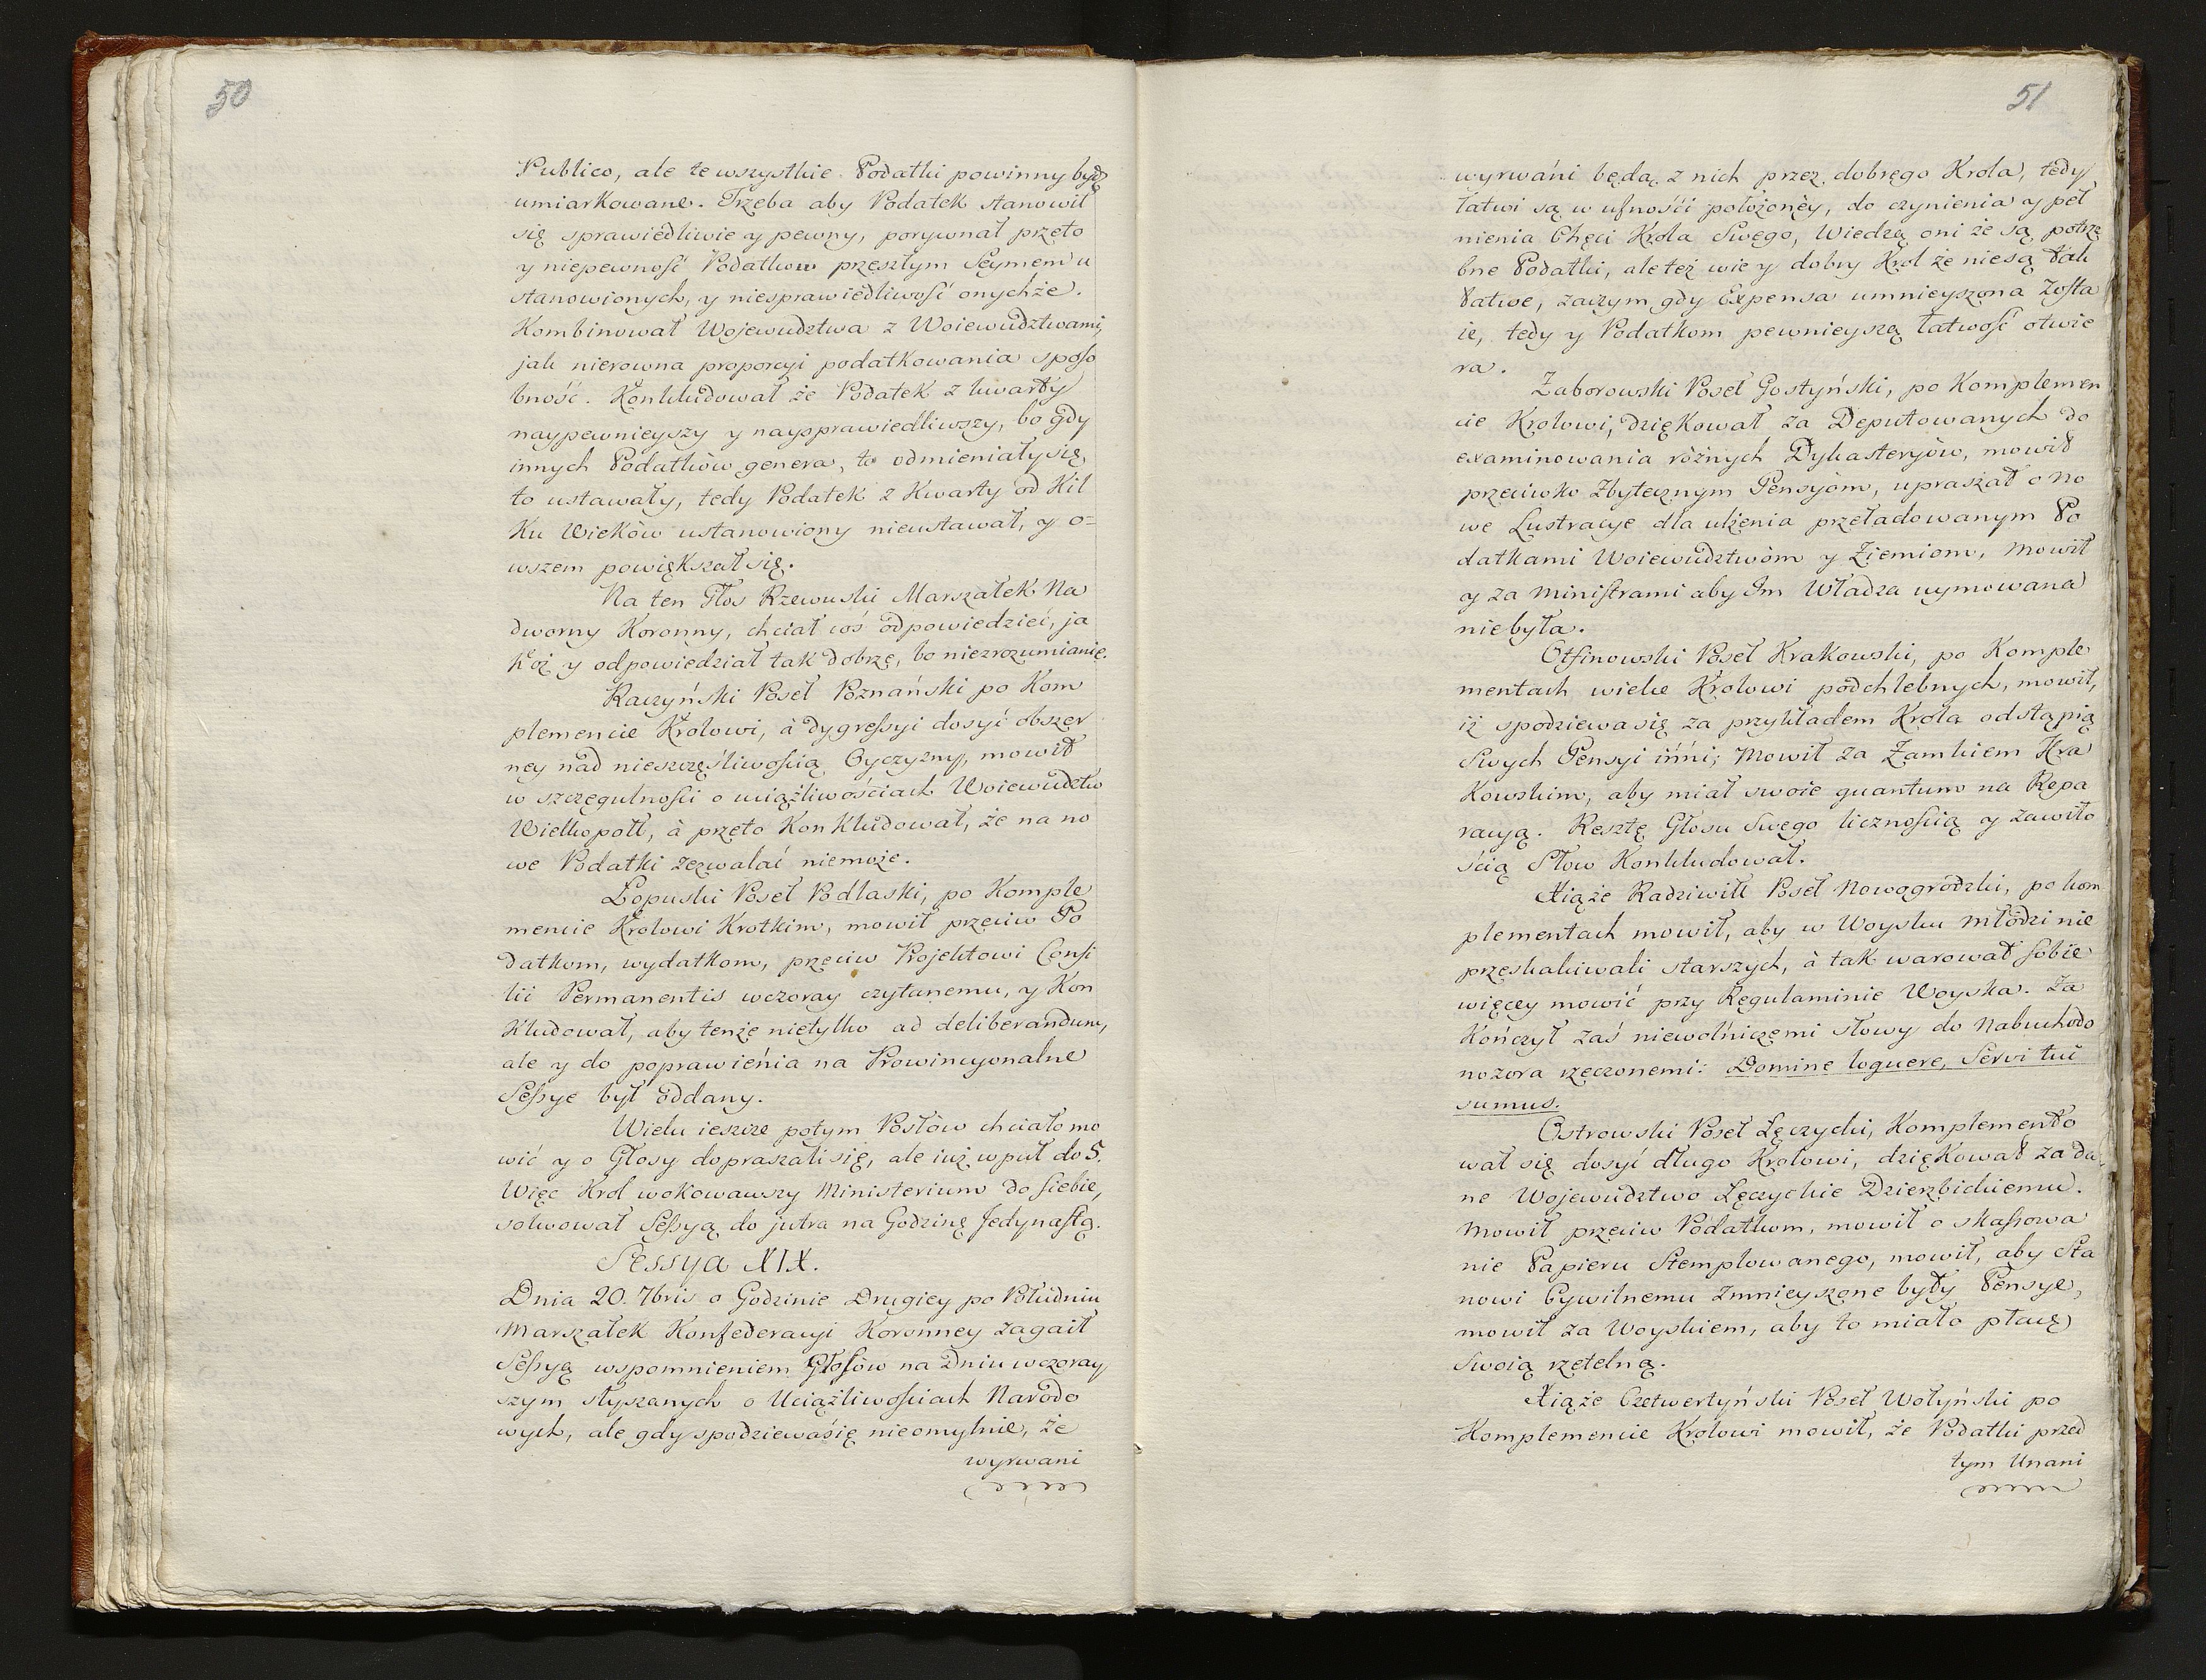 50
Publico, ale te wszystkie Podatki powinny bydź
umiarkowane. Trzeba aby Podatek stanowił
się sprawiedliwie y pewny, porywnał przeto
y niepewność Podatkow przeszłym Seymem u
stanowionych, y niesprawiedliwość onychże.
Kombinował Wojewudztwa z Woiewudztwami,
jak nierowna proporcyi podatkowania sposo
bność. Konkludował że Podatek z kwarty
naypewnieyszy y nayspprawiedliwszy, bo gdy
innych Podatków genera, to odmieniały się,
to ustawały, tedy Podatek z Kwarty od Kil
Ku Wieków ustanowiony nieustawał, y o=
wszem powiększał się.
Na ten Głos Rzewuski Marszałek Na
dworny Koronny, chciał coś odpowiedzieć, ja
koż y odpowiedział tak dobrze, bo niezrozumianie.
Raczyński Poseł Poznański po Kom
plemencie Krolowi, à dygressyi dosyć obszer
ney nad nieszczęśliwością Oyczyzny, mowił
w szczegulności o uciążliwościach Woiewudztw
Wielkopoll, à przeto KonKludował, że na no
we Podatki zezwalać niemoże.
Łopuski Poseł Podlaski, po Komple
mencie Krolowi Krotkim, mowił przeciw Po
datkom, wydatkom, przeciw Projektowi Consi
lii Permanentis wczoray czytanemu, y Kon
Kludował, aby tenże nietylko ad deliberandum,
ale y do poprawienia na Prowincyonalne
Sessye był oddany.
Wielu ieszcze potym Posłów chciało mo
wić y o Głosy dopraszali się, ale iuż w puł do 5.
Więc Krol wokowawszy Ministerium do siebie,
solwował Sessyą do jutra na Godzinę Jedynastą.
Sessya XIX.
Dnia 20. 7bris o Godzinie Drugiey po Południu
Marszałek Konfederacyi Koronney zagaił
Sessyą wspomnieniem Głosów na Dniu wczoray
szym słyszanych o Uciążliwościach Narodo
wych, ale gdy spodziewasię nieomylnie, że
wyrwani
51
wyrwani będą z nich przez dobrego Krola, tedy
łatwi są w ufności położoney, do czynienia y peł
nienia Chęci Krola Swego, Wiedzą oni że są potrze
bne Podatki, ale też wie y dobry Krol że niesą tak
łatwe, zaczym gdy Expensa umnieyszona zosta
ie, tedy y Podatkom pewnieyszą łatwość otwie
ra.
Zaborowski Poseł Gostyński, po Komplemen
cie Krolowi, dzięKował za Deputowanych do
examinowania różnych Dykasteryów, mowił
przeciwko zbytecznym Pensyom, upraszał o no
we Lustracye dla ulżenia przeładowanym Po
datkami Woiewudztwom y Ziemiom, mowił
y za Ministrami aby Im Władza uymowana
niebyła.
Otfinowski Poseł Krakowski, po Komple
mentach wielu Krolowi podchlebnych, mowił,
iż spodziewasię za przykładem Krola odstąpią
Swych Pensyi inni; Mowił za Zamkiem Kra
Kowskim, aby miał swoie quantum na Repa
racyą. Resztę Głosu Swego licznością y zawiło
ścią Słow Konkludował.
Xiąże Radziwiłł Poseł Nowogrodzki, po kom
plementach mowił, aby w Woysku młodzi nie
przeskakiwali starszych, à tak warował sobie
więcey mowić przy Regulaminie Woyska. Za
Kończył zaś niewolniczemi słowy do Nabuchodo
nozora rzeczonemi: Domine loquere, Servi tui
sumus.
Ostrowski Poseł Łęczycki, Komplemento
wał się dosyć długo Krolowi, dzięKował za da
ne Wojewudztwo Łęczyckie Dzierzbickiemu.
Mowił przeciw Podatkom, mowił o skassowa
nie Papieru Stemplowanego, mowił, aby Sta
nowi Cywilnemu zmnieyszone były Pensye,
mowił za Woyskiem, aby to miało płacę
Swoią rzetelną.
Xiąże Czetwertyński Poseł Wołyński po
Komplemencie Krolowi mowił, że Podatki przed
tym Unani